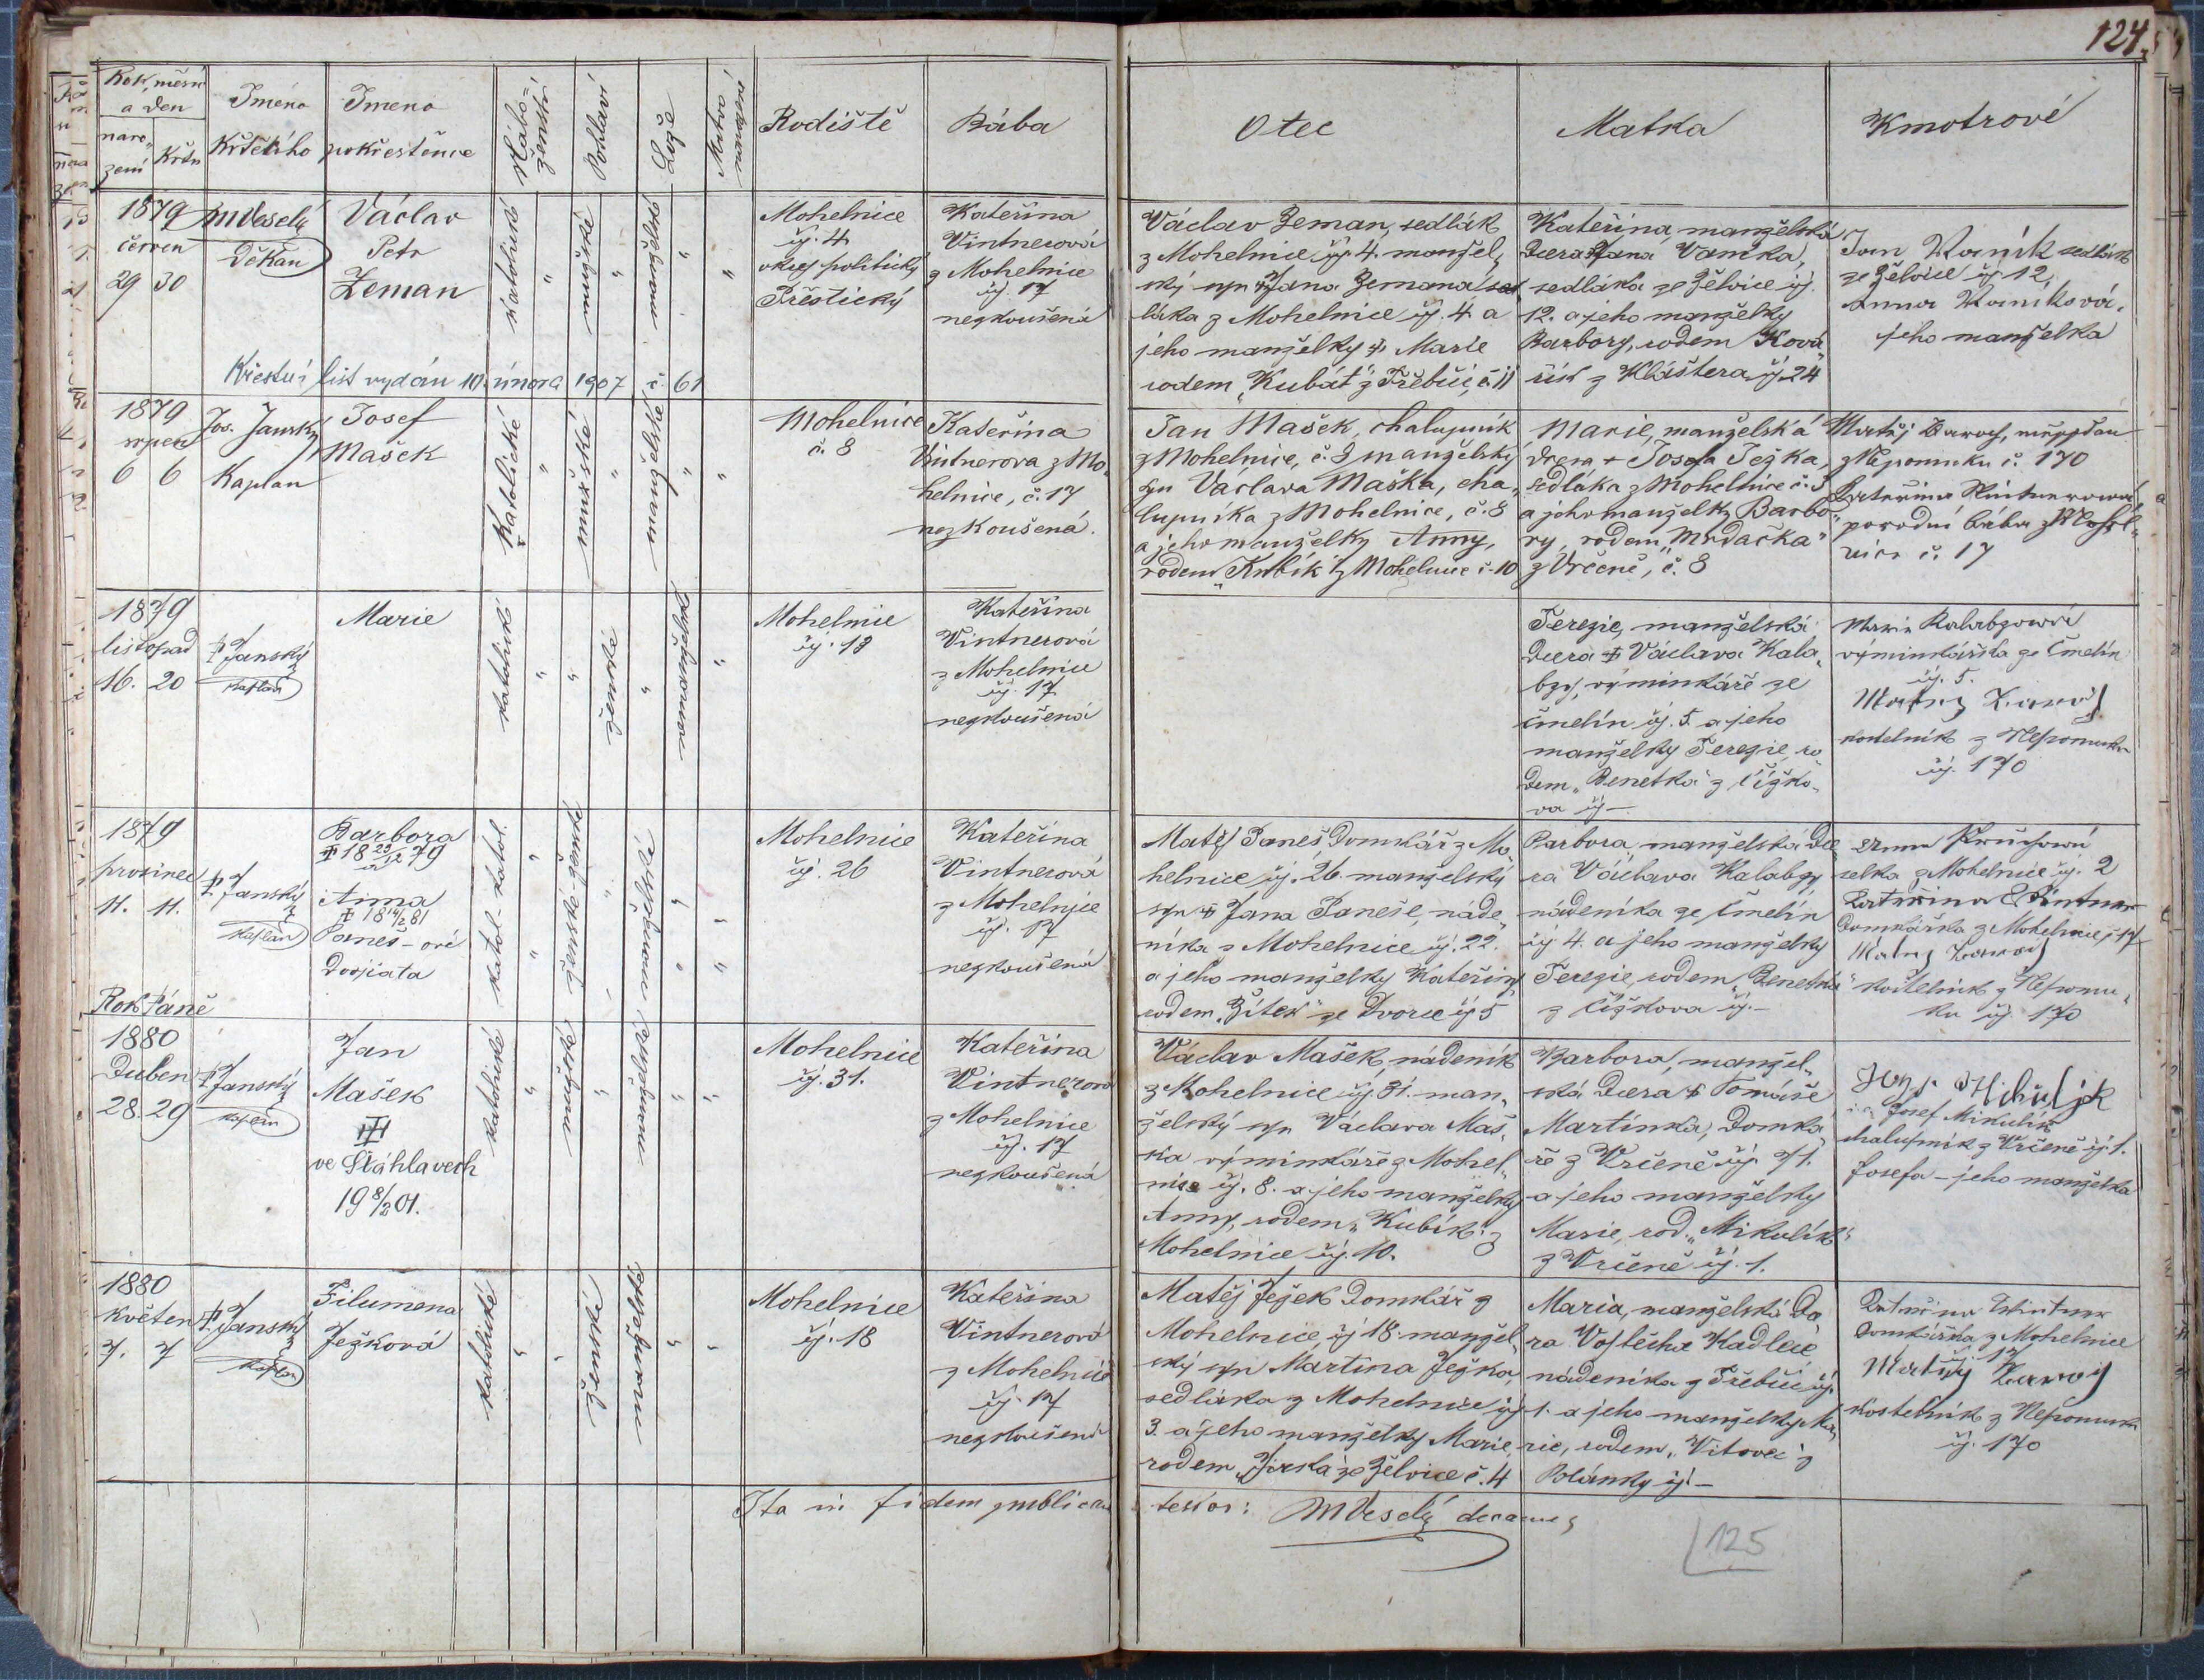 124
Rok, měsíc
a den
naro-
zení
Křtu
Jméno
Křtícího
Jmeno
pokřestěnce
Nábo-
ženství
Pohlaví
Lože
Rodiště
Bába
Otec
Matka
Kmotrové
1879
červen
29 30
MVeselý
Děkan
Václav
Petr
Zeman
katolické
mužské
manželské
Mohelnice
čj. 4
okres politický
Přestický
Kateřina
Vintnerová
z Mohelnice
čj. 17
nezkoušená
Václav Zeman, sedlák
z Mohelnice čj. 4. manžel-
ský syn † Jana Zemana, sed
láka z Mohelnice čj. 4. a
jeho manželky † Marie
rodem „Kubát“ z Třebčic, č. 11
Kateřina, manželská
dcera Jana Vaníka,
sedláka ze Želvice čj.
12. a jeho manželky
Barbory, rodem Ková
řík z Kláštera čj. 24
Jan Vaník sedlák
ze Želvice čj. 12,
Anna Vaníková,
jeho manželka
Křestní list vydán 10. února 1907 č. 61
1879
srpen
6 6
Jos. Janský
Kaplan
Josef
Mašek
Katolické
mužské
manželské
Mohelnice
č. 8
Kateřina
Vintnerova z Mo-
helnice, č. 17
nezkoušená.
Jan Mašek, chalupník
z Mohelnice, č. 8 manželský
syn Václava Maška, cha-
lupníka z Mohelnice, č. 8
a jeho manželky Anny,
rodem „Kubík“ z Mohelnice č. 10
Marie, manželská
dcera + Josefa Ježka,
sedláka z Mohelnice č. 3
a jeho manželky Barbo-
ry, rodem „Mrdačka“
z Vrčeně, č. 8
Matěj měšťan
z Nepomuku č. 170
Kateřina Vintnerowá,
porodní bába z Mohel-
nice č. 17
1879
listopad
16. 20
P. J. Janský
Kaplan
Marie
katolické
ženské
nemanželské
Mohelnice
čj. 18
Kateřina
Vintnerová
z Mohelnice
čj. 17
nezkoušená
Terezie, manželská
dcera † Václava Kala
bzy, výminkáře ze
Čmelín čj. 5. a jeho
manželky Terezie, ro
dem „Benetka“ z Čížko-
va čj –
Marie Kalabzowá
výminkářka ze Čmelín
čj. 5.
kostelník z Nepomuka
čj. 170
1879
prosinec
11. 11.
P. J. Janský
Kaplan
Barbora
† 18 29/12 79
Anna
† 18 14/2 81
Paneš-ové
Dvojčata
katol. - katol.
ženské - ženské
manželské
Mohelnice
čj. 26
Kateřina
Vintnerová
z Mohelnice
čj. 17
nezkoušená
Matěj Paneš, Domkář z Mo
helnice čj. 26. manželský
syn † Jana Paneše, náde
níka z Mohelnice čj. 22.
a jeho manželky Kateřiny
rodem „Žítek“ ze Dvorce čj 5
Barbora, manželská dce
ra Václava Kalabzy,
nádeníka ze Čmelín
čj 4. a jeho manželky
Terezie, rodem „Benetka“
z Čížkova čj. –
selka z Mohelnice čj. 2
Kateřina Vintner
Domkářka z Mohelnice č 17
kostelník z Nepomu-
ku čj. 170
Rok Páně
1880
Duben
28. 29
P. J. Janský
Kaplan
Jan
Mašek
†
ve Šťáhlavech
19 8/2 01.
katolické
mužské
manželské
Mohelnice
čj. 31.
Kateřina
Vintnerova
z Mohelnice
čj. 17
nezkoušená
Václav Mašek, nádeník
z Mohelnice čj. 31. man-
želský syn Václava Maš-
ka výminkáře z Mohel-
nice čj. 8. a jeho manželky
Anny, rodem „Kubík“ z
Mohelnice čj. 10.
Barbora, manžel-
ská dcera † Tomáše
Martínka, Domká-
ře z Vrčeně čj. 71.
a jeho manželky
Marie, rod. „Mikulík“
z Vrčeně čj. 1.
Josef Mikulík
chalupník z Vrčeně čj. 1.
Josefa – jeho manželka
1880
květen
7. 7
P. J. Janský
Kaplan
Filumena
Ježková
katolické
ženské
manželské
Mohelnice
čj. 18
Kateřina
Vintnerová
z Mohelnice
čj. 17
nezkoušená
Matěj Ježek Domkář z
Mohelnice, čj 18. manžel-
ský syn Martina Ježka,
sedláka z Mohelnice čj
3. a jeho manželky Marie,
rodem „Jirka“ ze Želvice č. 4
Maria, manželská Dce
ra Vojtěcha Kadlece
nádeníka z Třebčic čj.
1. a jeho manželky Ma
rie, rodem „Vitovec“ z
Polánky čj. –
Kateřina Vintner
Domkářka z Mohelnice
čj. 17
kostelník z Nepomuka
čj. 170
Ita in fidem publicam
testor: MVeselý decanus
125